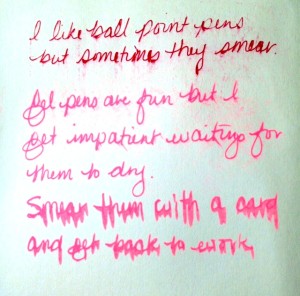 I like ball point pens
but sometimes they smear.
Gel pens are fun but I
get impatient waiting for
them to dry.
Smear them with a card
and get back to work